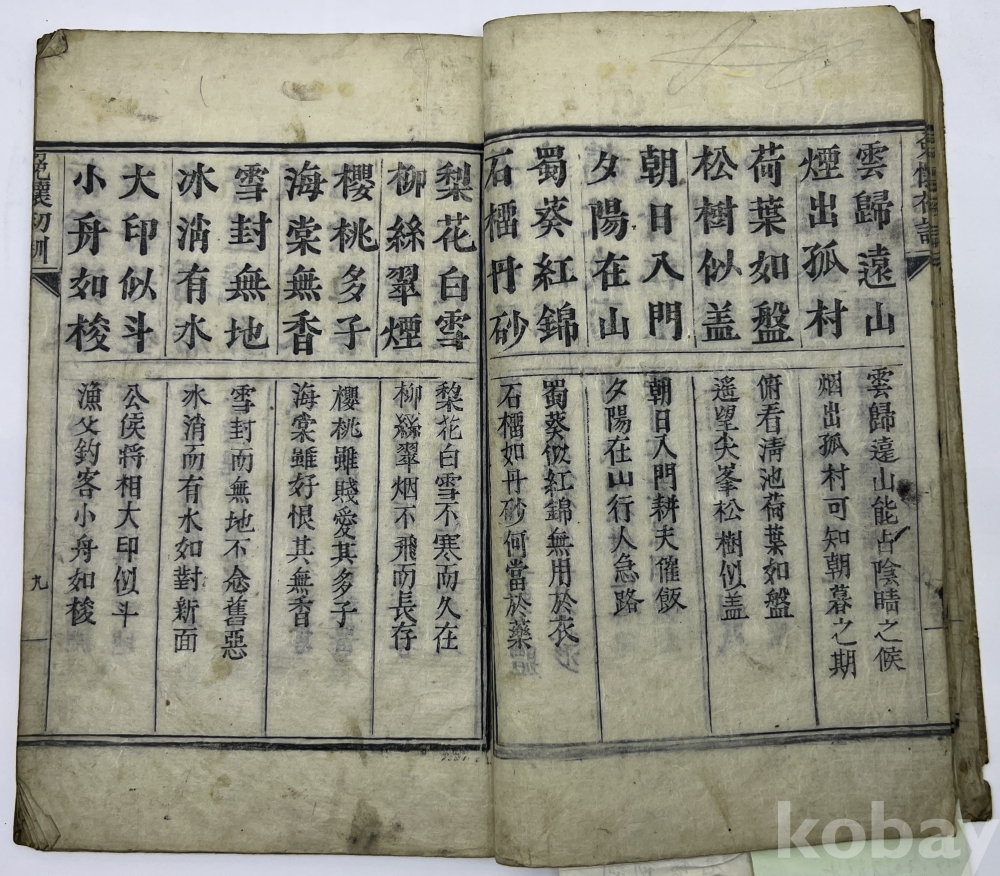 雲歸遠山
煙出孤村
荷葉如盤
松樹似盖
朝日入門
夕陽在山
蜀葵紅錦
石榴丹砂
雲歸遠山能占陰晴之候
烟出孤村可知朝暮之期
俯看淸池荷葉如盤
遥望尖峯松樹似盖
朝日入門耕夫催飯
夕陽在山行人急路
蜀葵似紅錦無用於衣
石榴如丹砂何當於藥
梨花白雪
柳絲翠煙
櫻桃多子
海棠無香
雪封無地
冰消有水
大印似斗
小舟如梭
梨花白雪不寒而久在
柳絲翠烟不飛而長存
櫻桃雖賤愛其多子
海棠雖好恨其無香
雪封而無地不念舊惡
氷消而有水如對新面
公侯將相大印似斗
漁父釣客小舟如梭
九
kobay